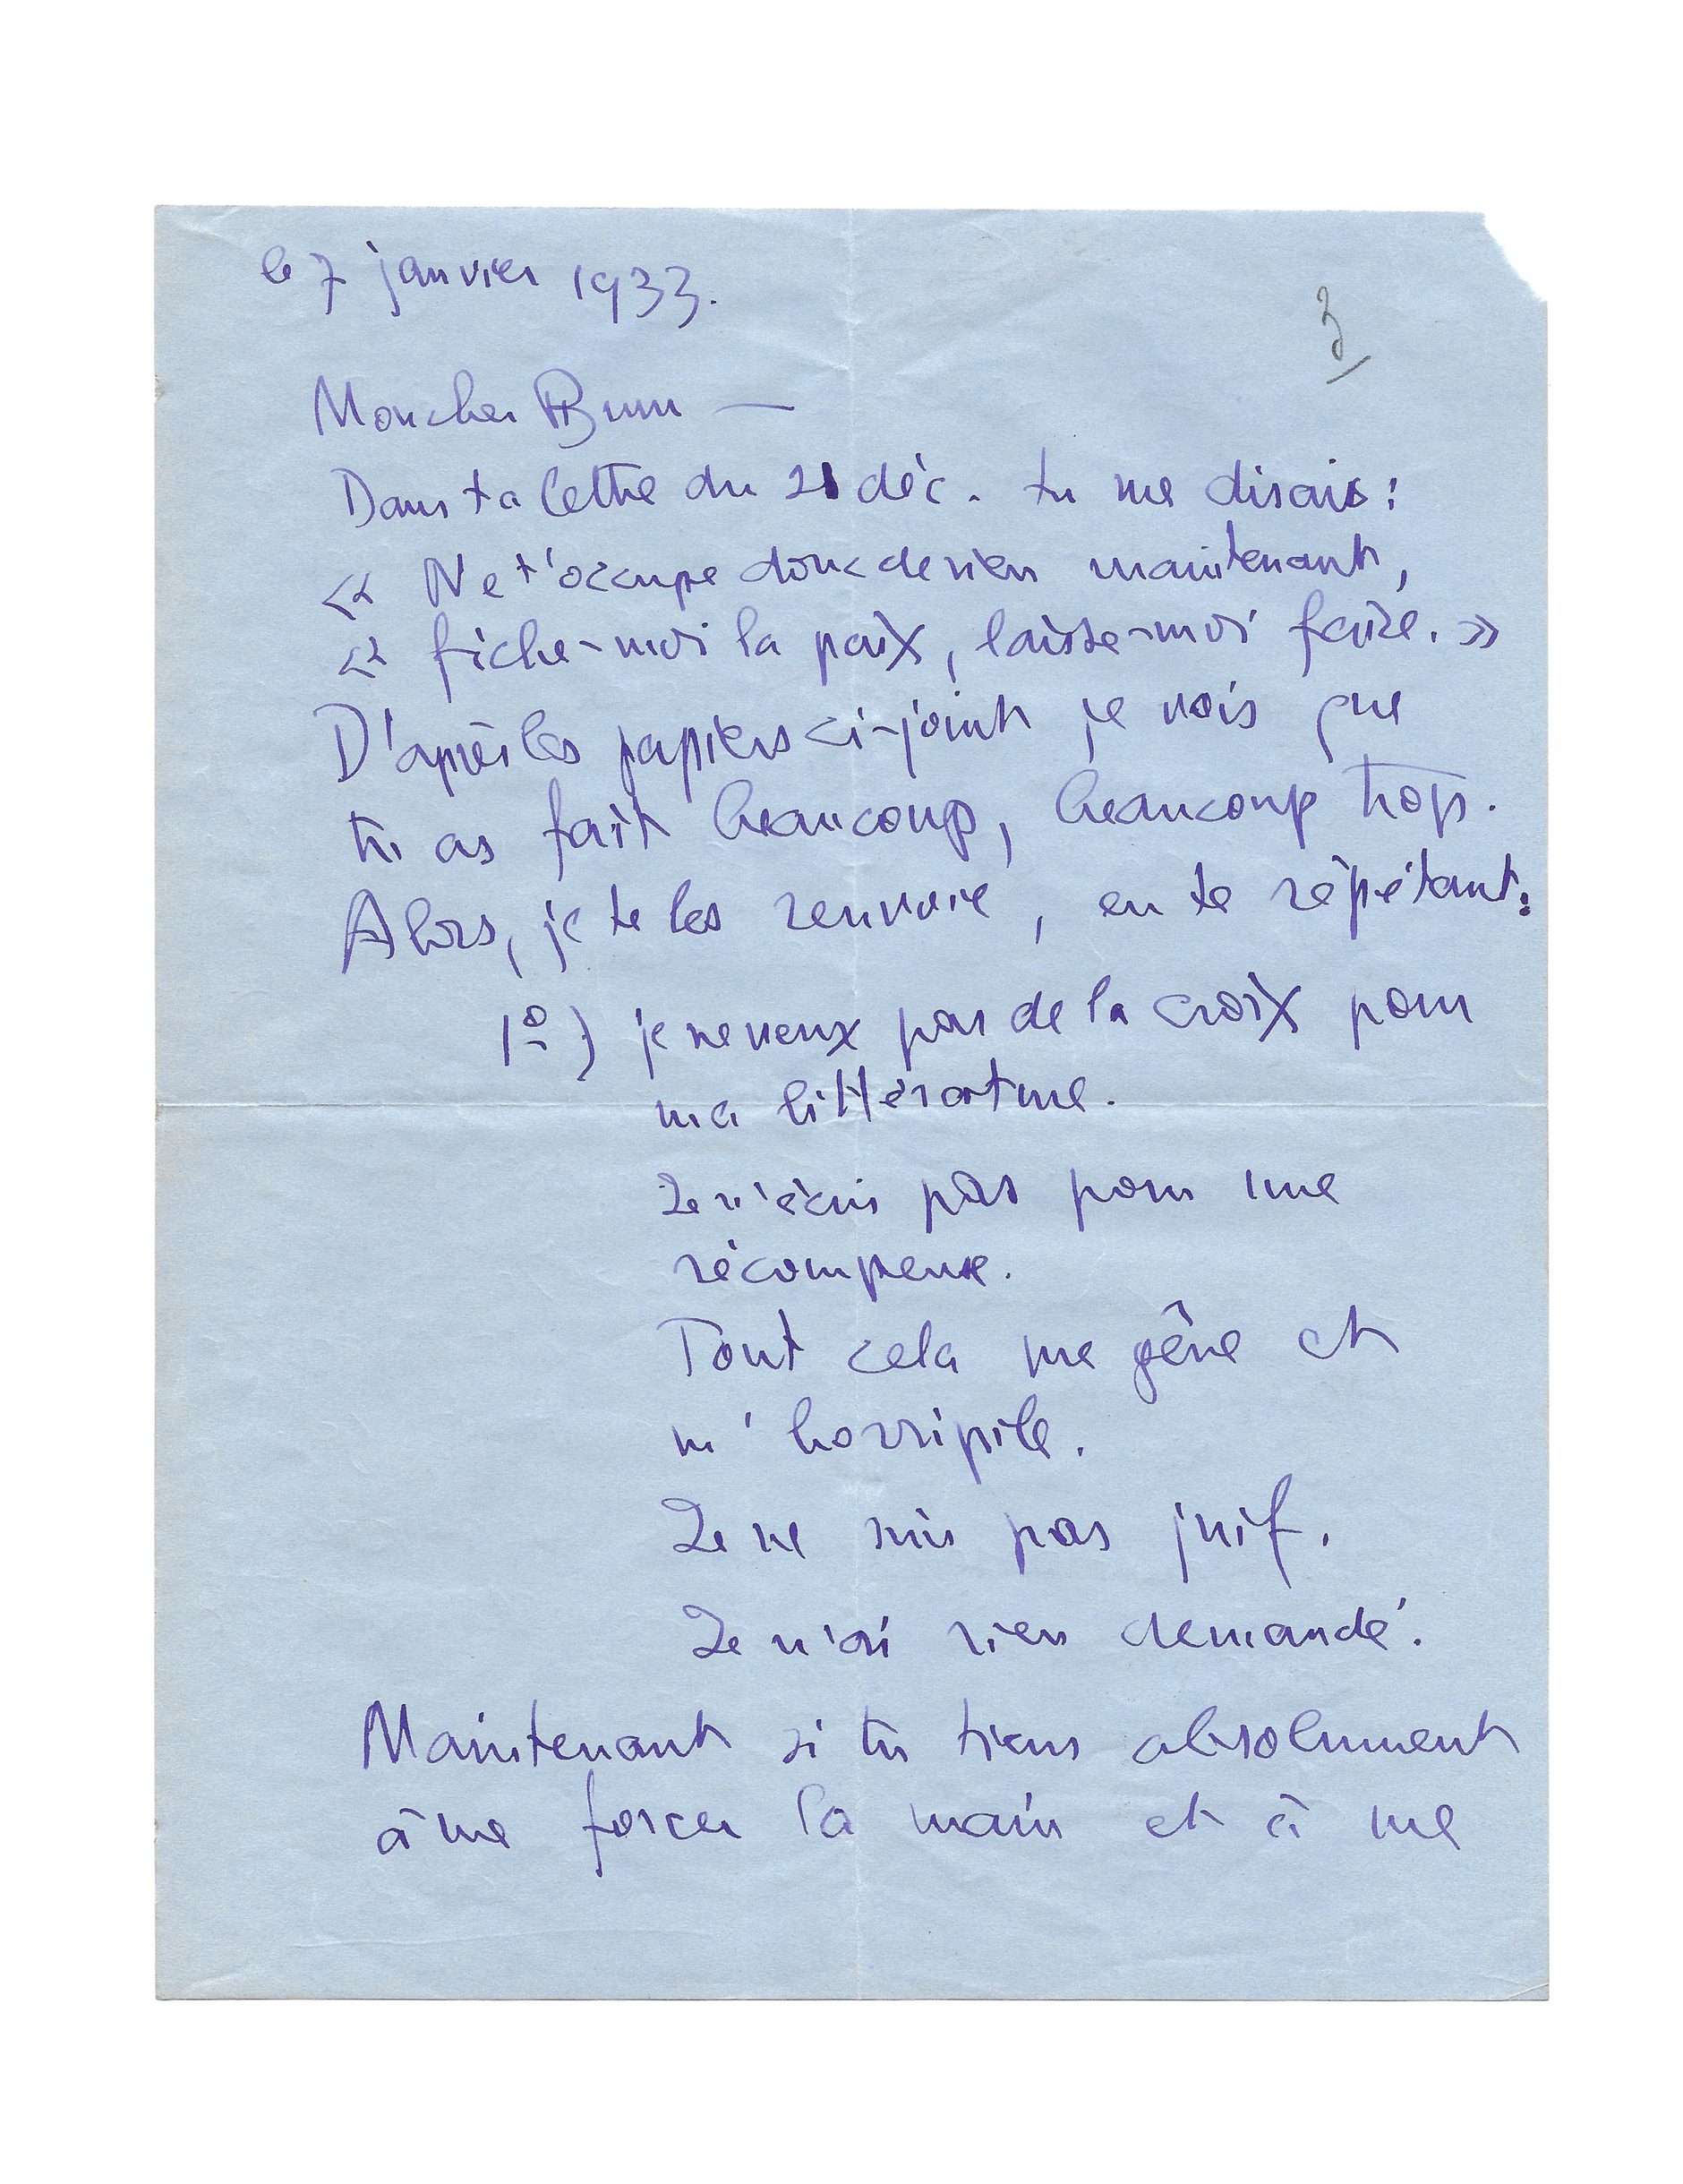 le 7 janvier 1933.
3
Mon cher Brun —
Dans ta lettre du 21 déc. tu me disais :
« Ne t'occupe donc de rien maintenant,
« fiche-moi la paix, laisse-moi faire. »
D'après les papiers ci-joint je vois que
tu as fait beaucoup, beaucoup trop.
Alors, je te les renvoie, en te répétant :
1º) je ne veux pas de la croix pour
ma littérature.
Je n'écris pas pour une
récompense.
Tout cela me gêne et
m'horripile.
Je ne suis pas juif.
Je n'ai rien demandé.
Maintenant si tu tiens absolument
à me forcer la main et à me